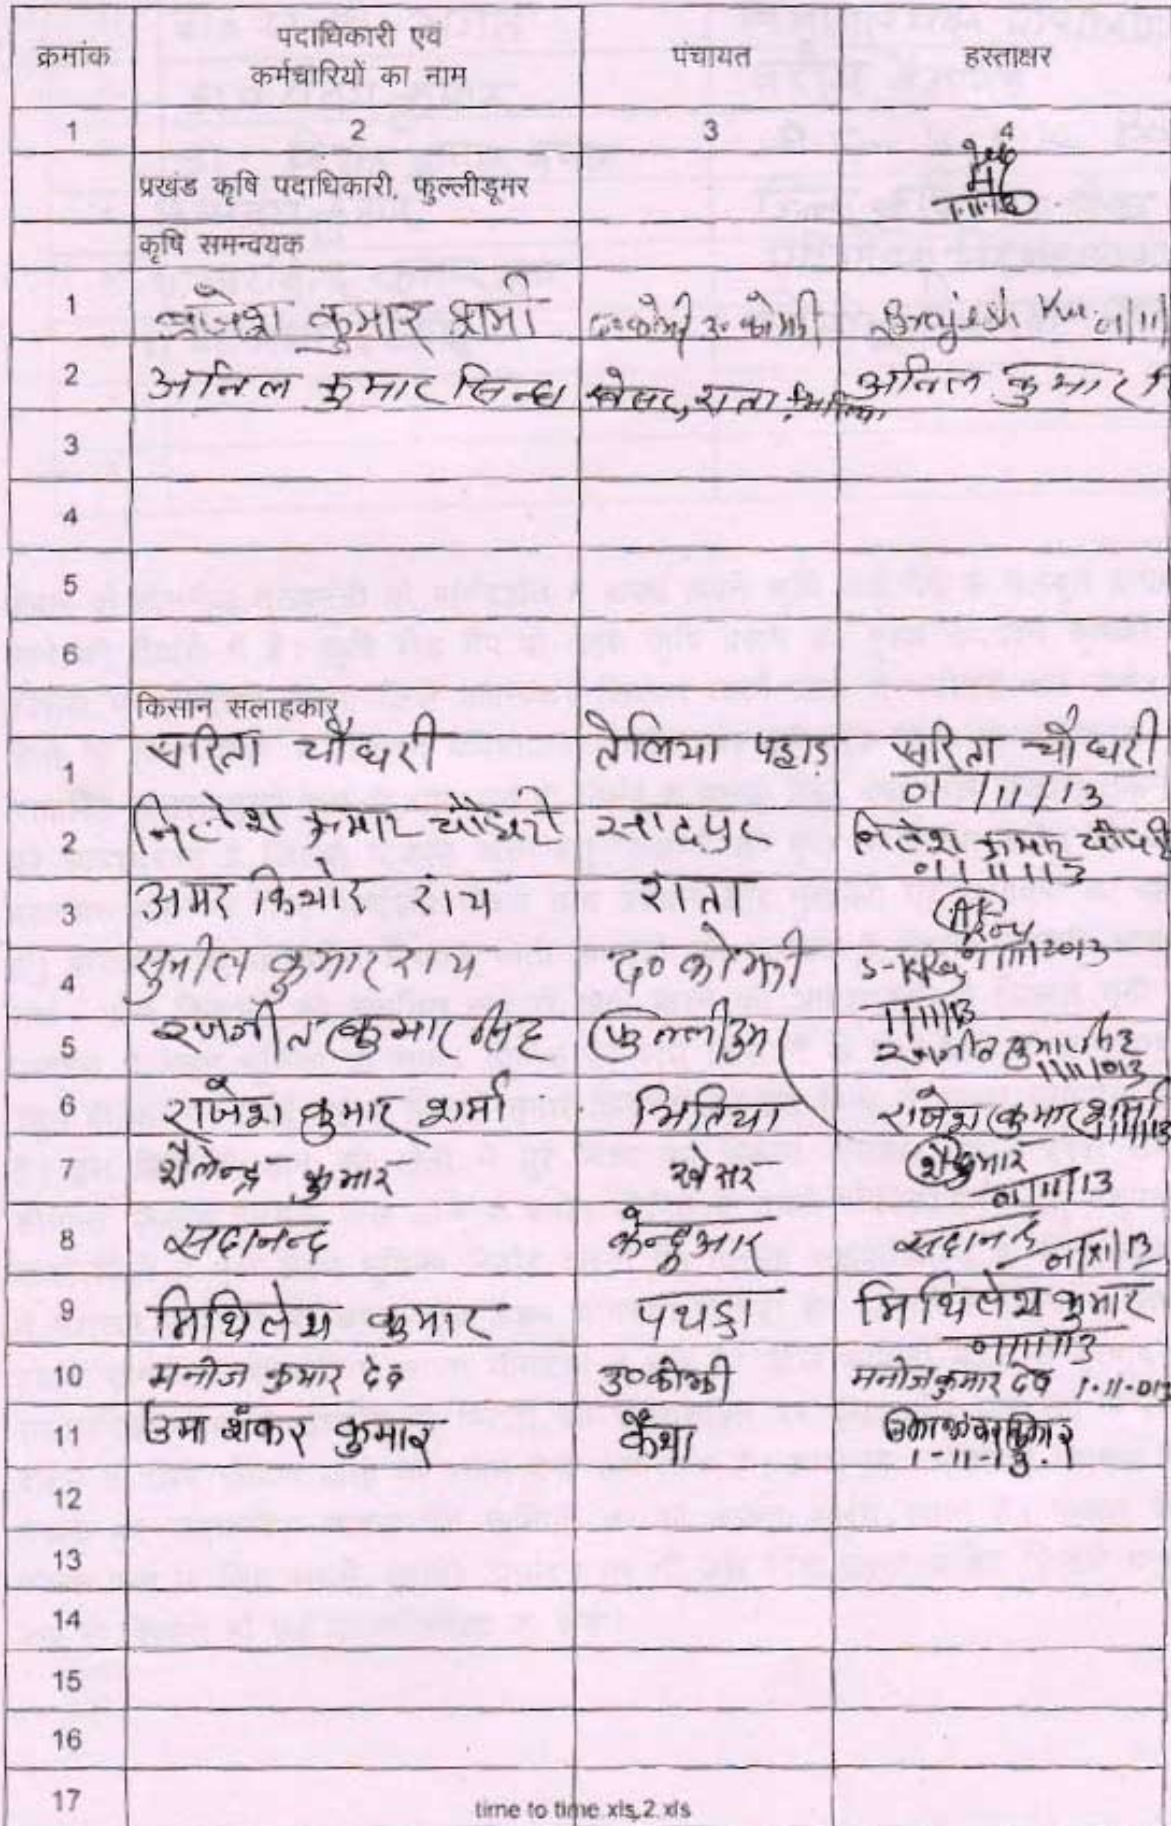 क्रमांक पदाधिकारी एवं कर्मचारियों का नाम पंचायत हस्ताक्षर
1 2 3 4
प्रखंड कृषि पदाधिकारी, फुल्लीडूमर 1.11.13
कृषि समन्वयक
1 ब्रजेश कुमार शर्मा द०कोझी उ०कोझी Brajesh Kr. 01/11/
2 अनिल कुमार सिन्हा खेसर, राता, भितिया अनिल कुमार
3
4
5
6
किसान सलाहकार
1 सरिता चौधरी तेलिया पहाड़ सरिता चौधरी 01/11/13
2 निलेश कुमार चौधरी सादपुर निलेश कुमार चौधरी 01/11/13
3 अमर किशोर राय राता 01/11/2013
4 सुनील कुमार राय द० कोझी S-KRoy 1/11/13
5 रणजीत कुमार सिंह फुल्लीडुमर रणजीत कुमार सिंह 1/11/013
6 राजेश कुमार शर्मा भितिया राजेश कुमार शर्मा 1/11/13
7 शैलेन्द्र कुमार खेसर शै०कुमार 01/11/13
8 सदानन्द केन्दुआर सदानन्द 01/11/13
9 मिथिलेश कुमार पथड़ा मिथिलेश कुमार 01/11/13
10 मनोज कुमार देव उ०कोझी मनोज कुमार देव 1-11-013
11 उमा शंकर कुमार कैथा उमा शंकर कुमार 1-11-13.
12
13
14
15
16
17 time to time.xls,2.xls